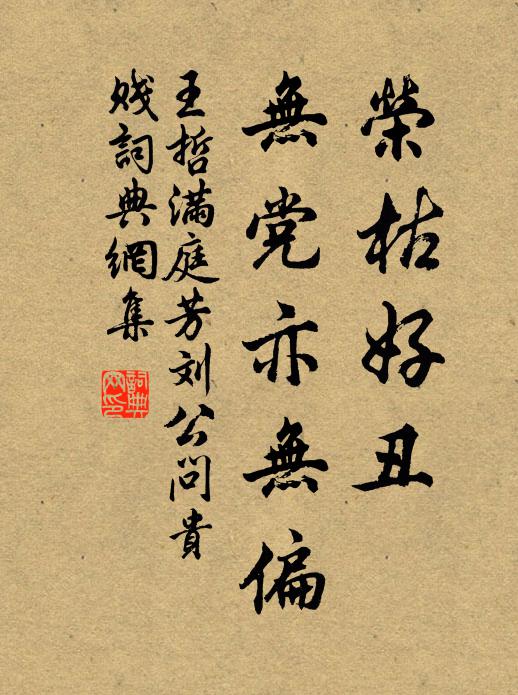 榮枯好丑
無党亦無偏
王哲滿庭芳刘公問貴
賤詞典網集
詞典網印